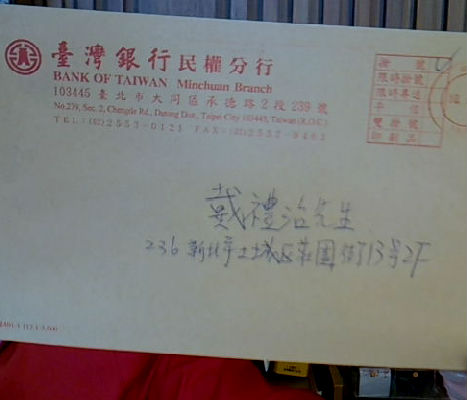 臺灣銀行民權分行
BANK OF TAIWAN Minchuan Branch
103445 臺北市大同區承德路2段239號
No.239, Sec. 2, Chengde Rd., Datong Dist., Taipei City 103445, Taiwan (R.O.C.)
TEL:(02)2553-0121 FAX:(02)2552-
掛號
限時掛號
限時專送
平信
雙掛號
印刷品
戴禮治先生
236 新北市土城區莊園街13号2F